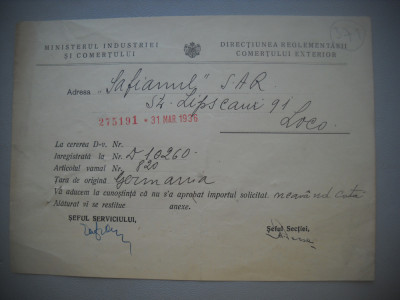 MINISTERUL INDUSTRIEI
ȘI COMERȚULUI
DIRECȚIUNEA REGLEMENTĂRII
COMERȚULUI EXTERIOR
Adresa „Safianul” SAR
Str. Lipscani 91
275191 * 31 MAR 1936
Loco.
La cererea D-v. Nr.
Inregistrată la Nr. D 10260.
Articolul vamal Nr. 820
Țara de origină Germania
Vă aducem la cunoștință că nu s'a aprobat importul solicitat
Alăturat vi se restitue anexe.
ȘEFUL SERVICIULUI,
Șeful Secției,